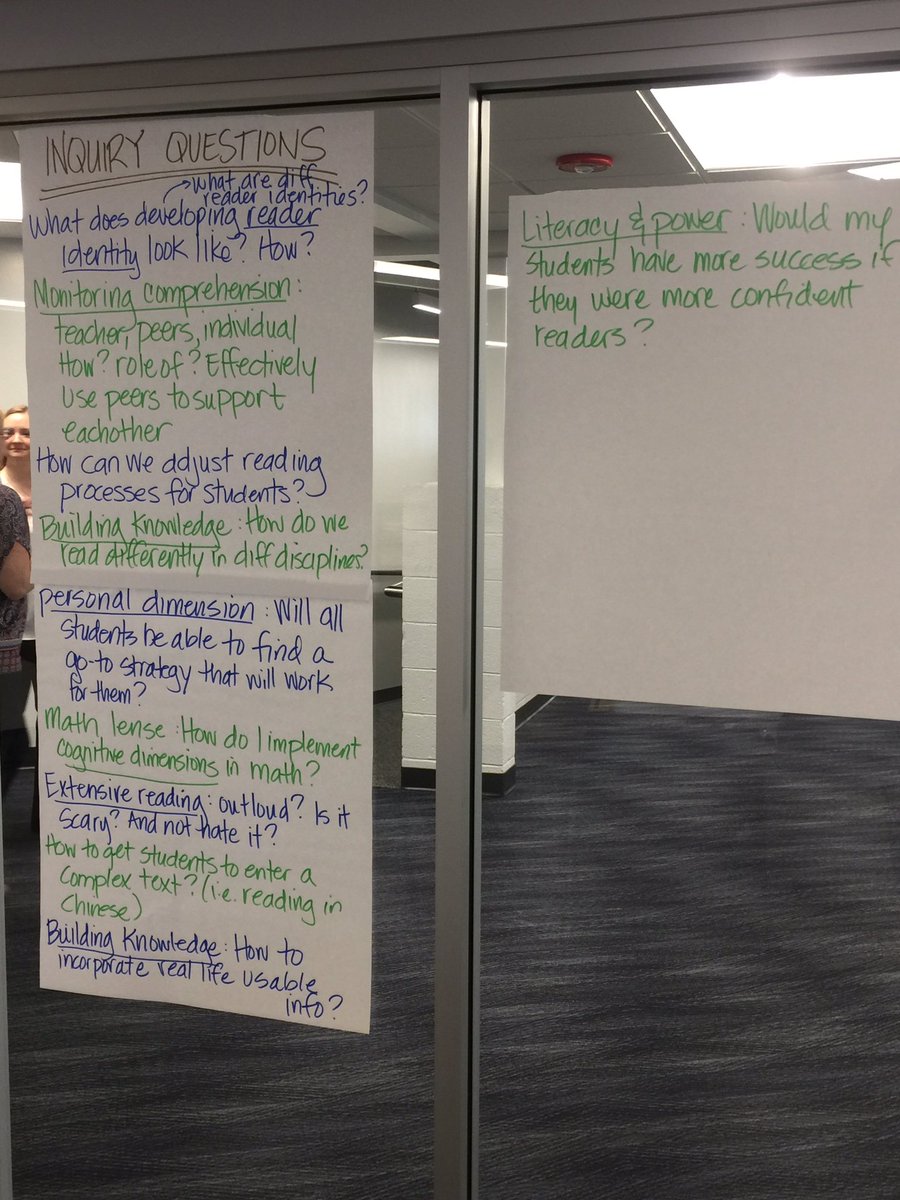 INQUIRY QUESTIONS
→ what are diff
reader identities?
What does developing reader
identity look like? How?
Monitoring comprehension:
teacher, peers, individual
How? role of? Effectively
use peers to support
eachother
How can we adjust reading
processes for students?
Building Knowledge: How do we
read differently in diff disciplines?
personal dimension: Will all
students be able to find a
go-to strategy that will work
for them?
Math lense: How do I implement
cognitive dimensions in math?
Extensive reading: outloud? Is it
scary? And not hate it?
How to get students to enter a
complex text? (i.e. reading in
Chinese)
Building Knowledge: How to
incorporate real life usable
info?
Literacy & power: Would my
students have more success if
they were more confident
readers?